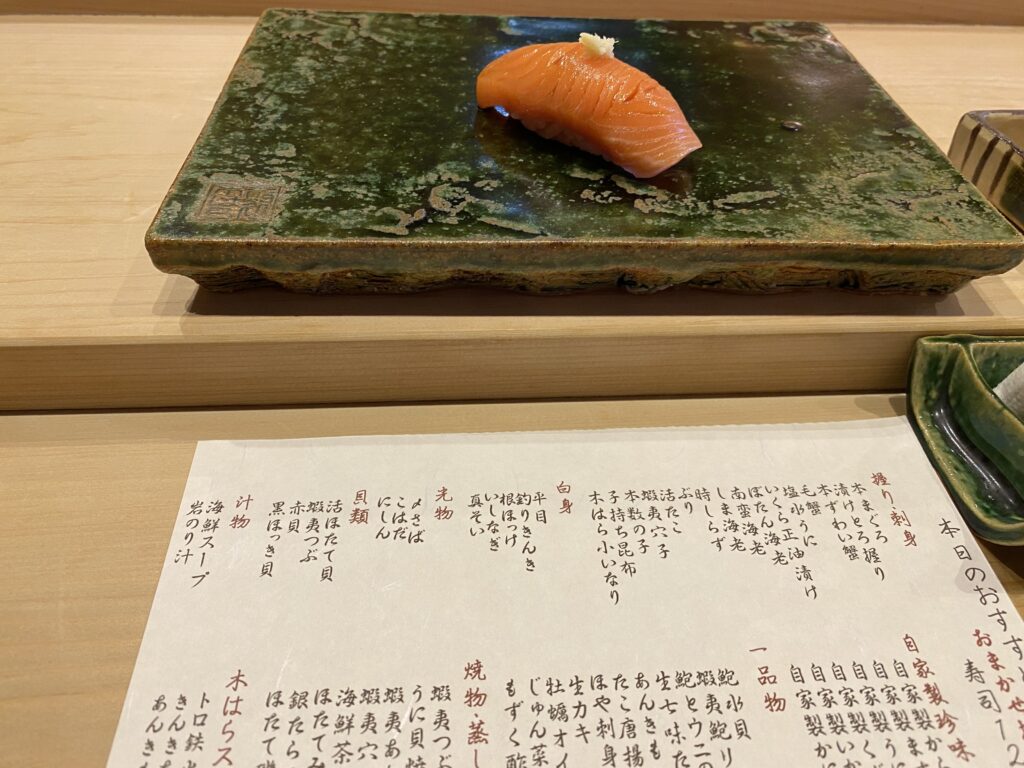 本日のおすす
おまかせ
寿司12
握り・刺身
本まぐろ握り
漬けとろ
本ずわい蟹
毛蟹
塩水うに
いくら正油漬け
ぼたん海老
南蛮海老
しま海老
時しらず
ぶり
活たこ
蝦夷穴子
本数の子
子持ち昆布
木はら小いなり
白身
平目
釣りきんき
根ほっけ
いしなぎ
真そい
光物
〆さば
こはだ
にしん
貝類
活ほたて貝
蝦夷つぶ
赤貝
黒ほっき貝
汁物
海鮮スープ
岩のり汁
自家製珍味
自家製から
自家製まぐ
自家製うに
自家製くじ
自家製いか
自家製かに
一品物
鮑水貝
蝦夷鮑リ
鮑とウニの
生七味た
あんきも
たこ唐揚
ほや刺身
生カキ
牡蠣オイ
じゅん菜
もずく酢
焼物・蒸し
蝦夷つぶ
うに貝焼
蝦夷あ
蝦夷穴
海鮮茶
ほたてみ
銀たら
ほたて
木はらス
トロ鉄火
きんき
あんき